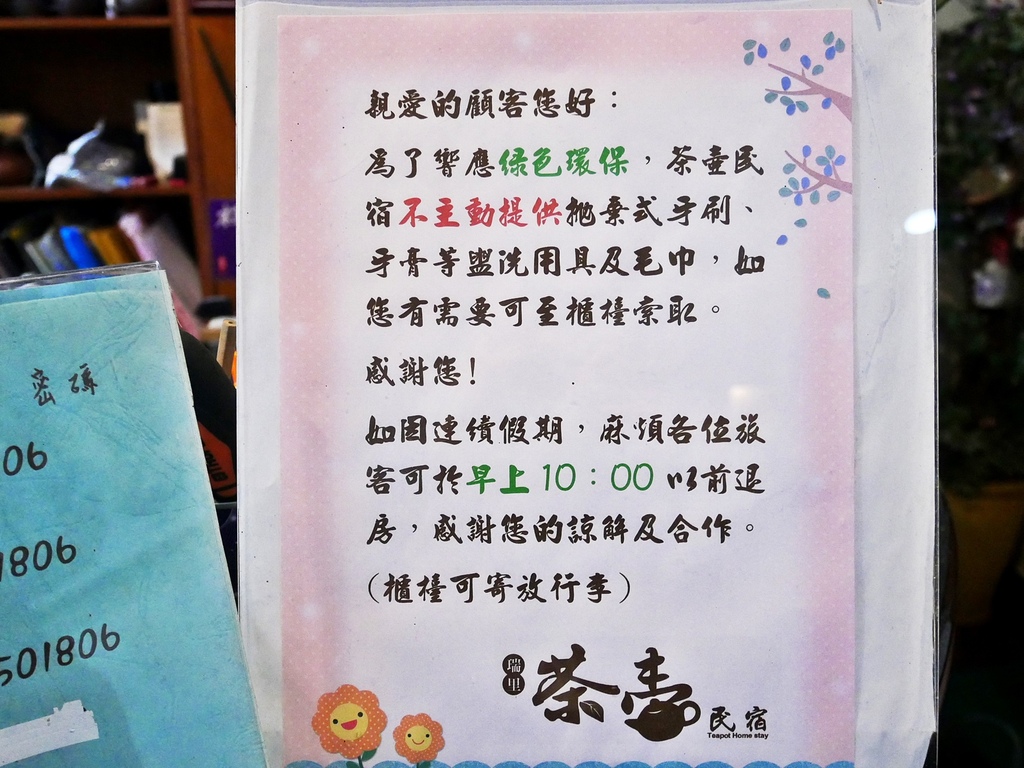 親愛的顧客您好：
為了響應绿色環保，茶壺民
宿不主動提供拋棄式牙刷、
牙膏等盥洗用具及毛巾，如
您有需要可至櫃檯索取。
感謝您！
如因連續假期，麻煩各位旅
客可於早上10：00以前退
房，感謝您的諒解及合作。
（櫃檯可寄放行李）
瑞里
茶壺
民宿
Teapot Home stay
密碼
06
1806
501806